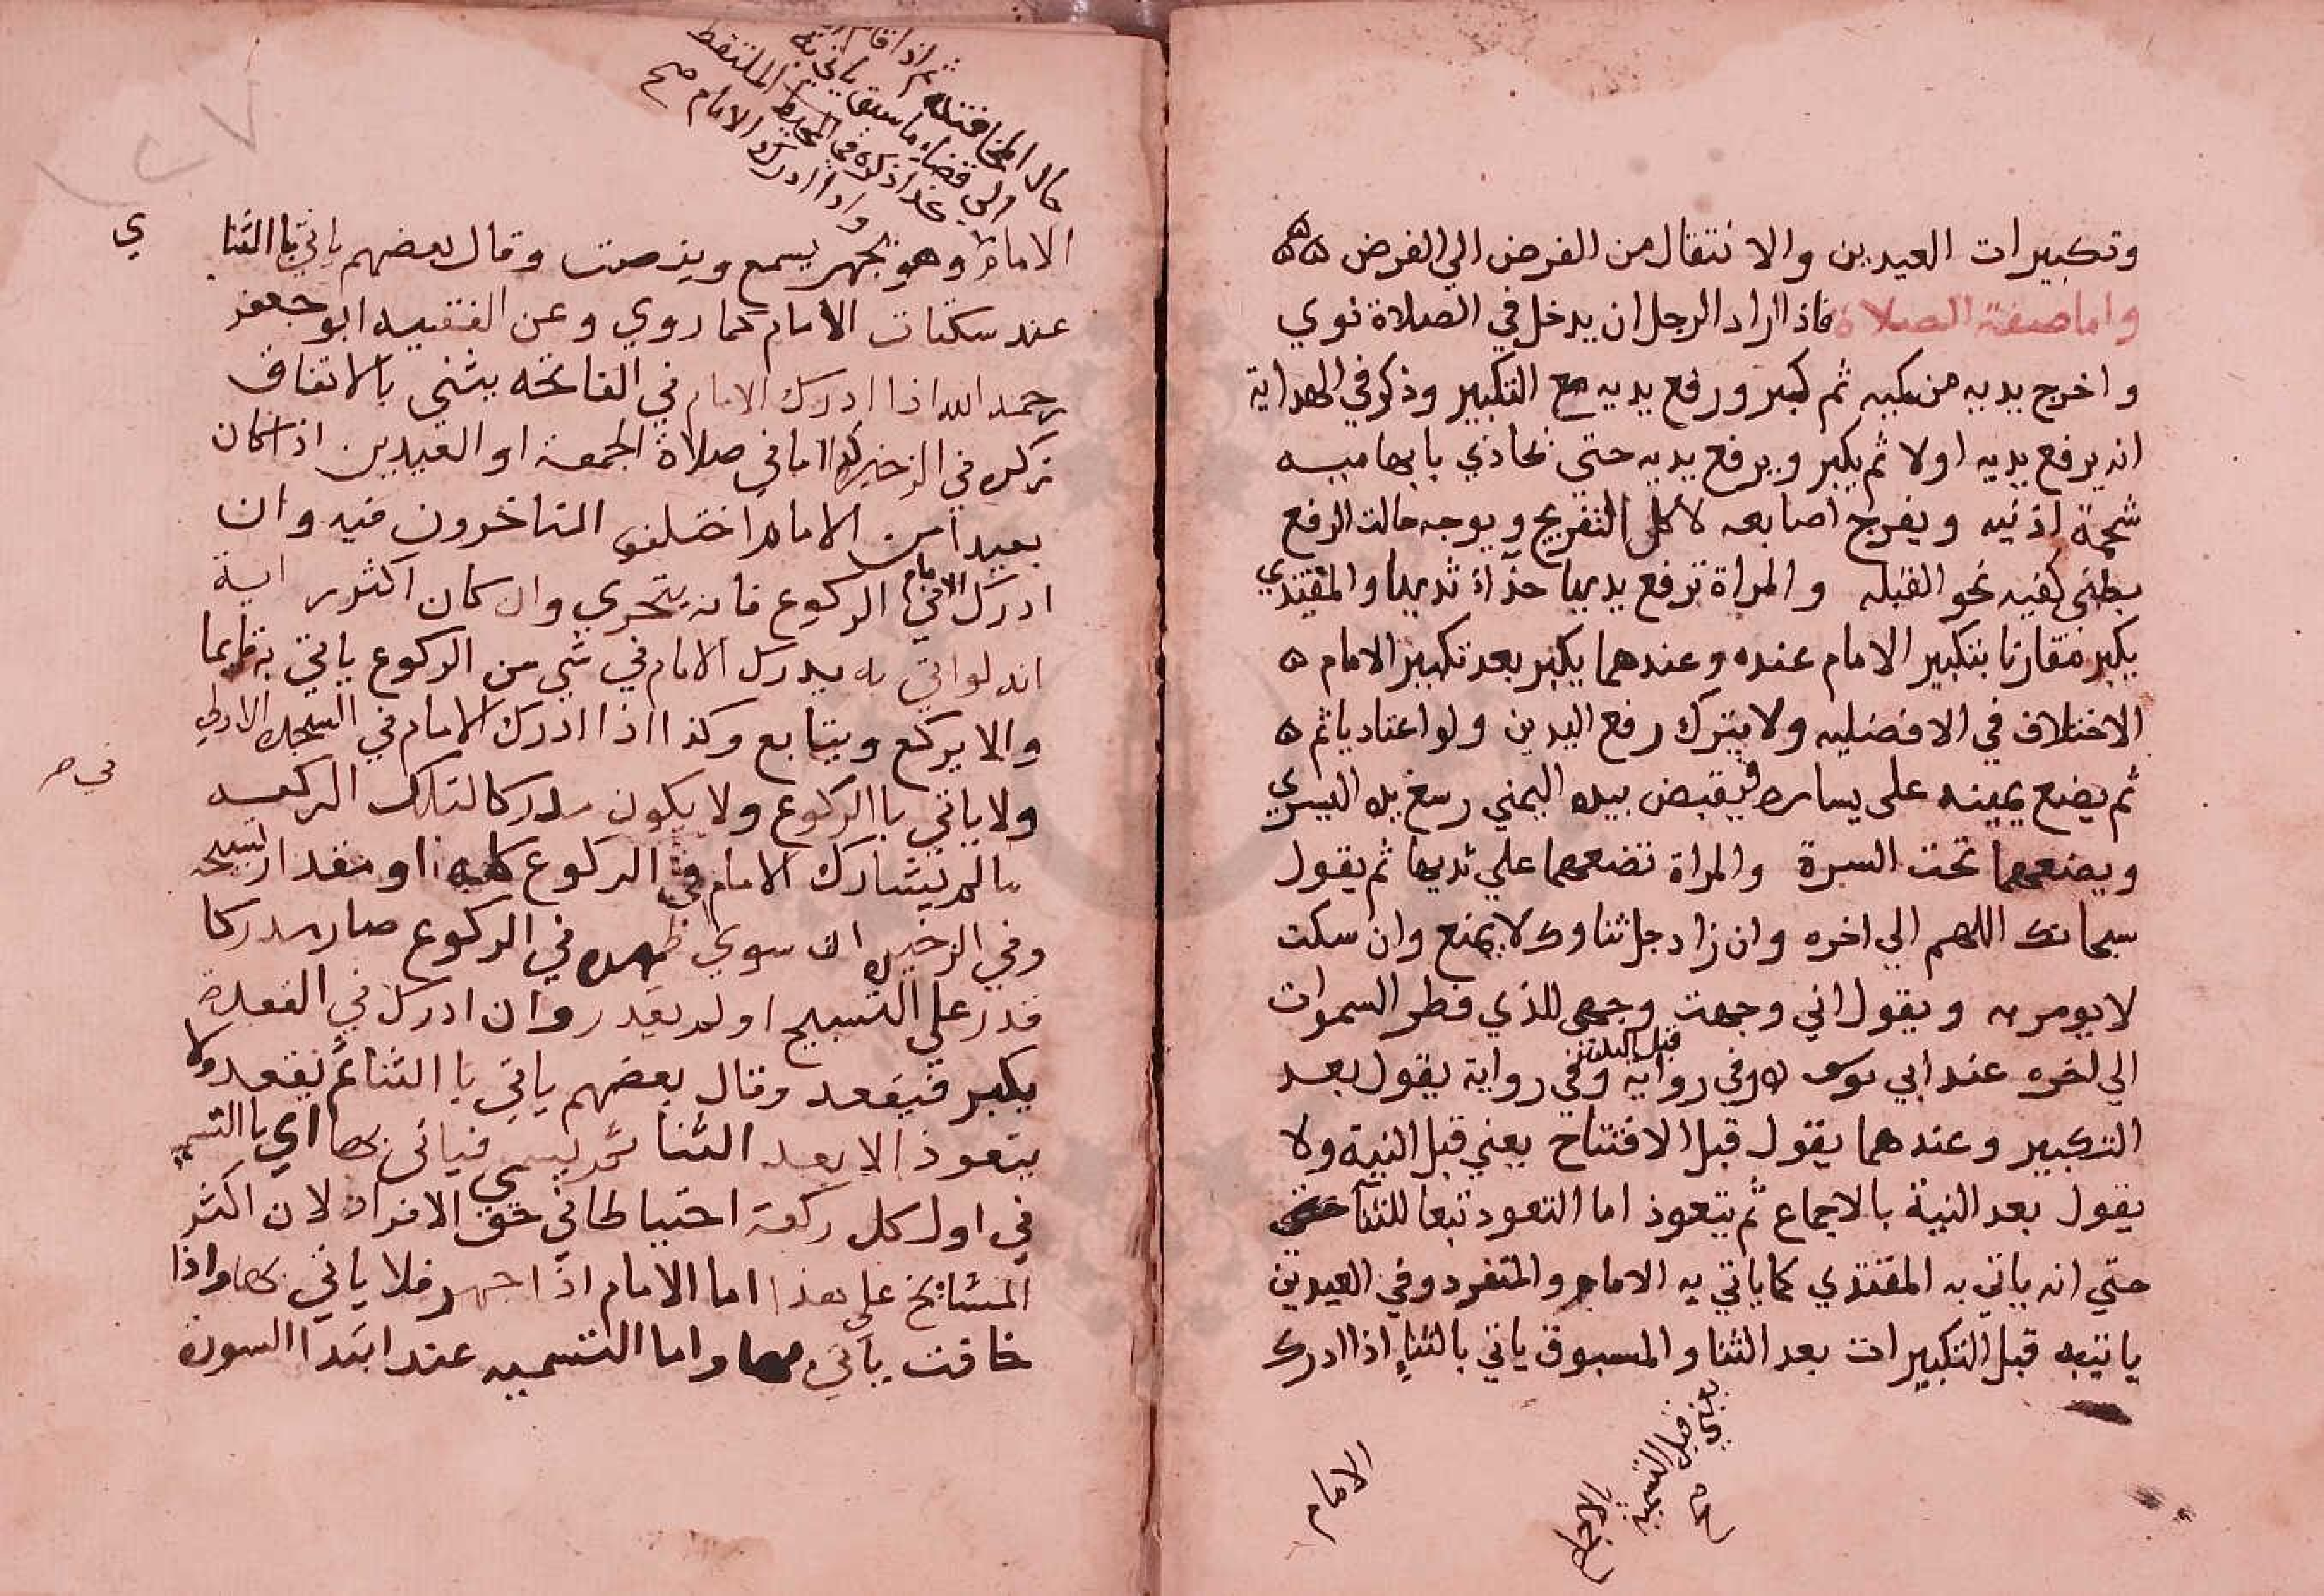 وتكبيرات العيدين والانتقال من الفرض الي الفرض ۵۵۵
واما صفة الصلاة فاذا اراد الرجل ان يدخل في الصلاة نوي
واخرج يديه من كميه ثم كبر ورفع يديه مع التكبير وذكر في الهداية
انه يرفع يديه اولا ثم يكبر ويرفع يديه حتي تحاذي بابهاميه
شحمة اذنيه ويفرج اصابعه لا كل التفريج ويوجه حالت الرفع
بطني كفيه نحو القبله والمراة ترفع يديها حذاء ثدييها والمقتدي
يكبر مقارنا بتكبير الامام عنده وعندهما يكبر بعد تكبير الامام ۵
الاختلاف في الافضليه ولا يترك رفع اليدين ولو اعتاد ياثم ۵
ثم يضع يمينه على يساره فيقبض بيده اليمني رسغ يده اليسري
ويضعهما تحت السرة والمراة تضعهما علي ثديها ثم يقول
سبحانك اللهم الي اخره وان زاد جل ثناوك لا يمنع وان سكت
لا يومر به ويقول اني وجهت وجهي للذي فطر السموات
الي اخره عند ابي يوسف وفي رواية وفي رواية يقول بعد
التكبير وعندهما يقول قبل الافتتاح يعني قبل النية ولا
يقول بعد النية بالاجماع ثم يتعوذ اما التعوذ تبعا للثنا
حتي انه ياتي به المقتدي كما ياتي به الامام والمنفرد وفي العيدين
ياتيه قبل التكبيرات بعد الثنا والمسبوق ياتي بالثناء اذا ادرك
يعني قبل التسمية صح
بالاجماع
الامام
حال المخافتة ثم اذا قام
الي قضاء ما سبق ياتي به
كذا ذكره في المحيط الملتقط
واذا ادرك الامام صح
الامام وهو يجهر يسمع وينصت وقال بعضهم ياتي باالثنا
عند سكتات الامام كما روي وعن الفقيه ابو جعفر
رحمه الله اذا ادرك الامام في الفاتحه يثني بالاتفاق
ذكره في الذخيره اما في صلاة الجمعة او العيدين اذا كان
بعيدا من الامام اختلف المتاخرون فيه وان
ادرك الامام في الركوع فانه يتحري وان كان اكثر رايه
انه لو اتي به يدرك الامام في شي من الركوع ياتي به قايما
والا يركع ويتابع وكذا اذا ادرك الامام في السجده الاولي
ولا ياتي باالركوع ولا يكون مدركا لتلك الركعه
مالم يشارك الامام في الركوع كله او مقدار تسبيحه
وفي الذخيره ان سوي ظهره في الركوع صار مدركا
قدر علي التسبيح او لم يقدر وان ادرك في القعدة
يكبر فيقعد وقال بعضهم ياتي باالثنا ثم يقعد ولا
يتعوذ الا بعد الثنا ثم يسمي فياتي بها اي باالتسميه
في اول كل ركعة احتياطا في حق الافراد لان اكثر
المشايخ على هذا اما الامام اذا جهر فلا ياتي بها واذا
خافت ياتي بها واما التسميه عند ابتدا السورة